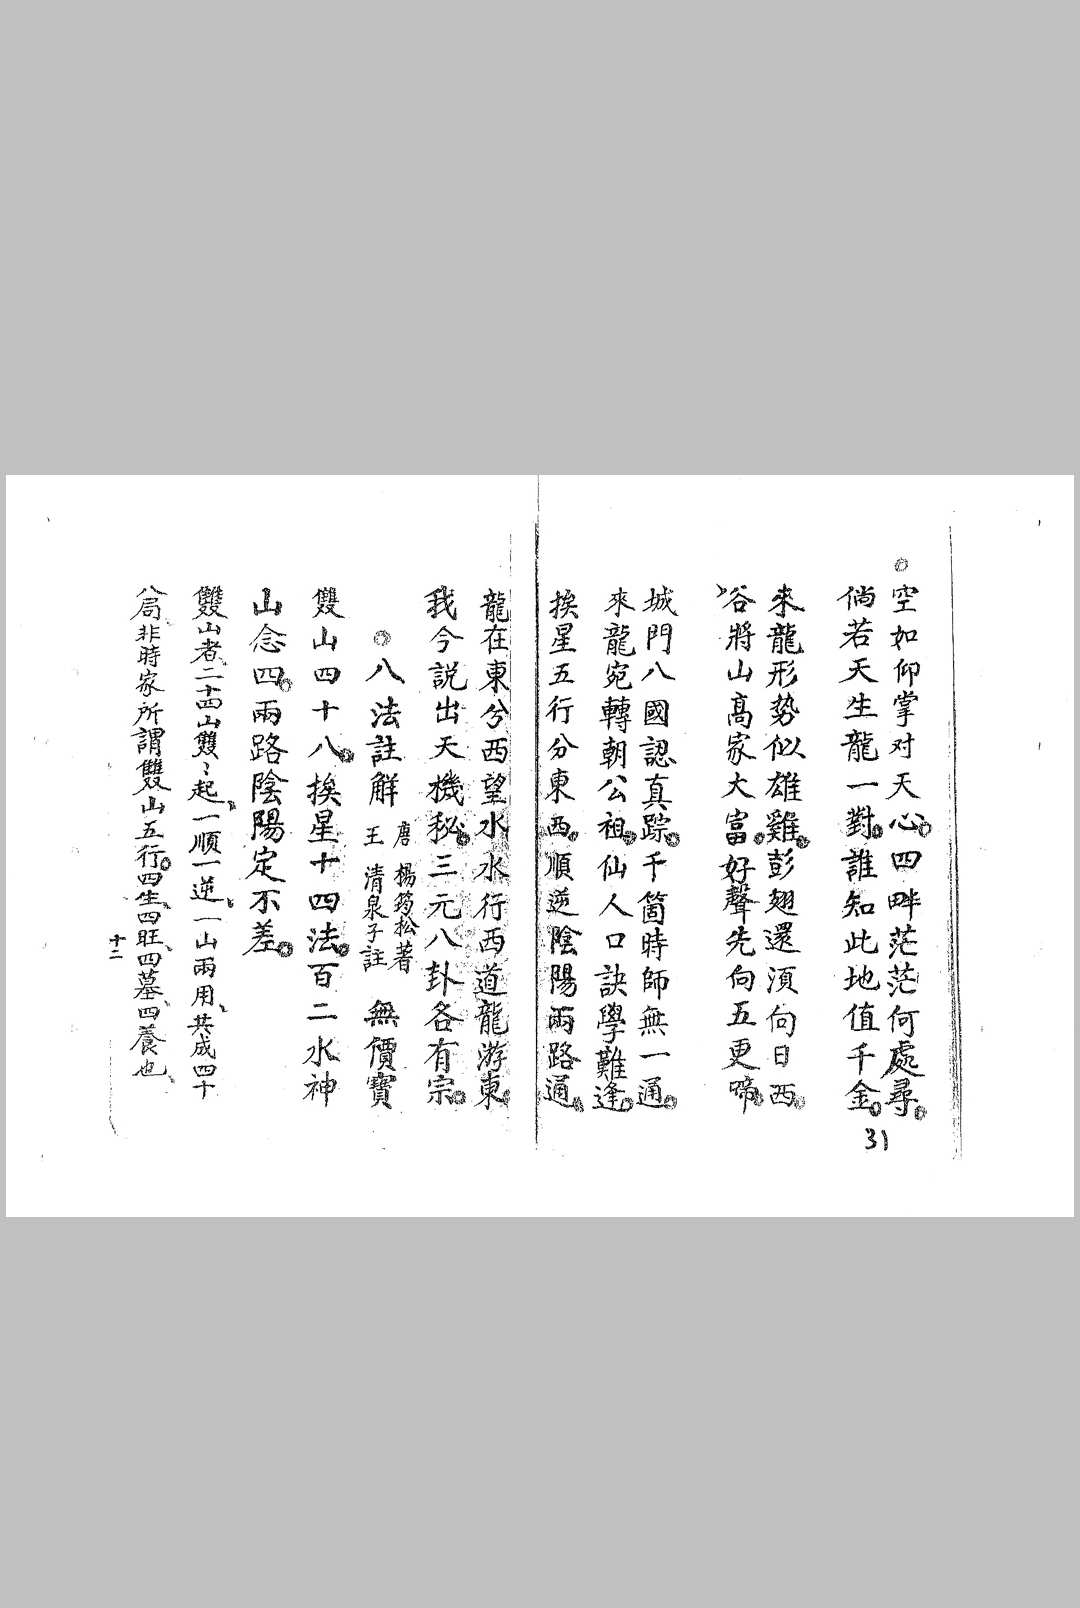 ◎空如仰掌对天心。四畔茫茫何處尋。
倘若天生龍一對。誰知此地值千金。
來龍形势似雄雞。彭翅還須向日西。
谷將山高家大富。好聲先向五更啼。
城門八國認真踪。千箇時師無一通。
來龍宛轉朝公祖。仙人口訣學難逢。
挨星五行分東西。順逆陰陽兩路通。
龍在東兮西望水。水行西道龍游東。
我今説出天機秘。三元八卦各有宗。
◎八法註解 唐 楊筠松著 王 清泉子註 無價寶
雙山四十八。挨星十四法。百二水神
山念四。兩路陰陽定不差。
雙山者、二十四山雙々起、一順一逆、一山兩用、共成四十
八局、非時家所謂雙山五行。四生、四旺、四墓、四養也、
十二
31